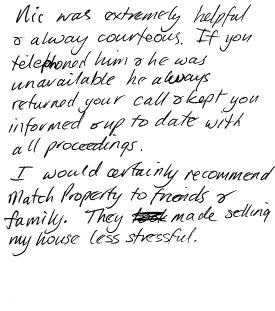 Nic was extremely helpful
& alway courteous. If you
telephoned him & he was
unavailable he always
returned your call & kept you
informed & up to date with
all proceedings.
I would certainly recommend
Match Property to friends &
family. They made selling
my house less stressful.